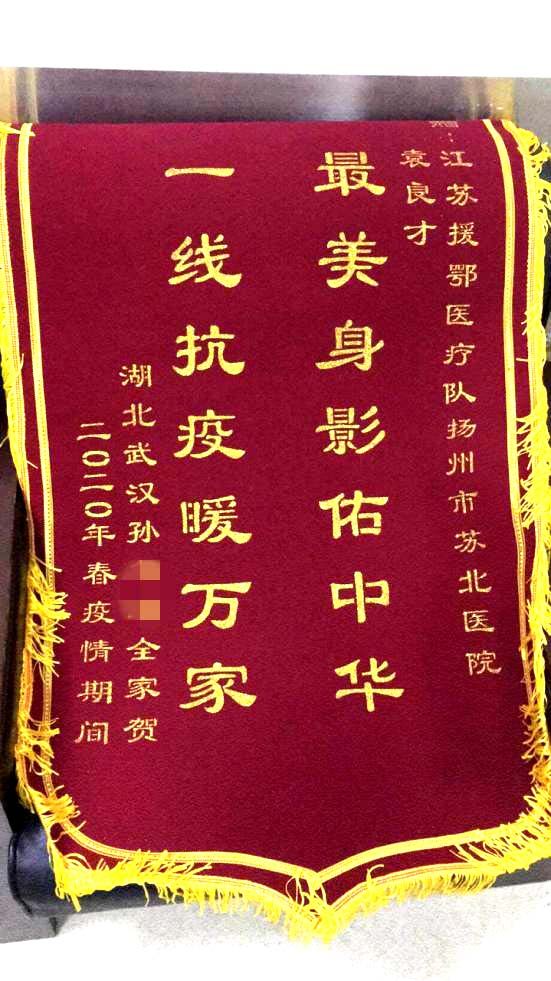 江苏援鄂医疗队扬州市苏北医院
袁良才
最美身影佑中华
一线抗疫暖万家
湖北武汉孙 全家贺
二〇二〇年春疫情期间